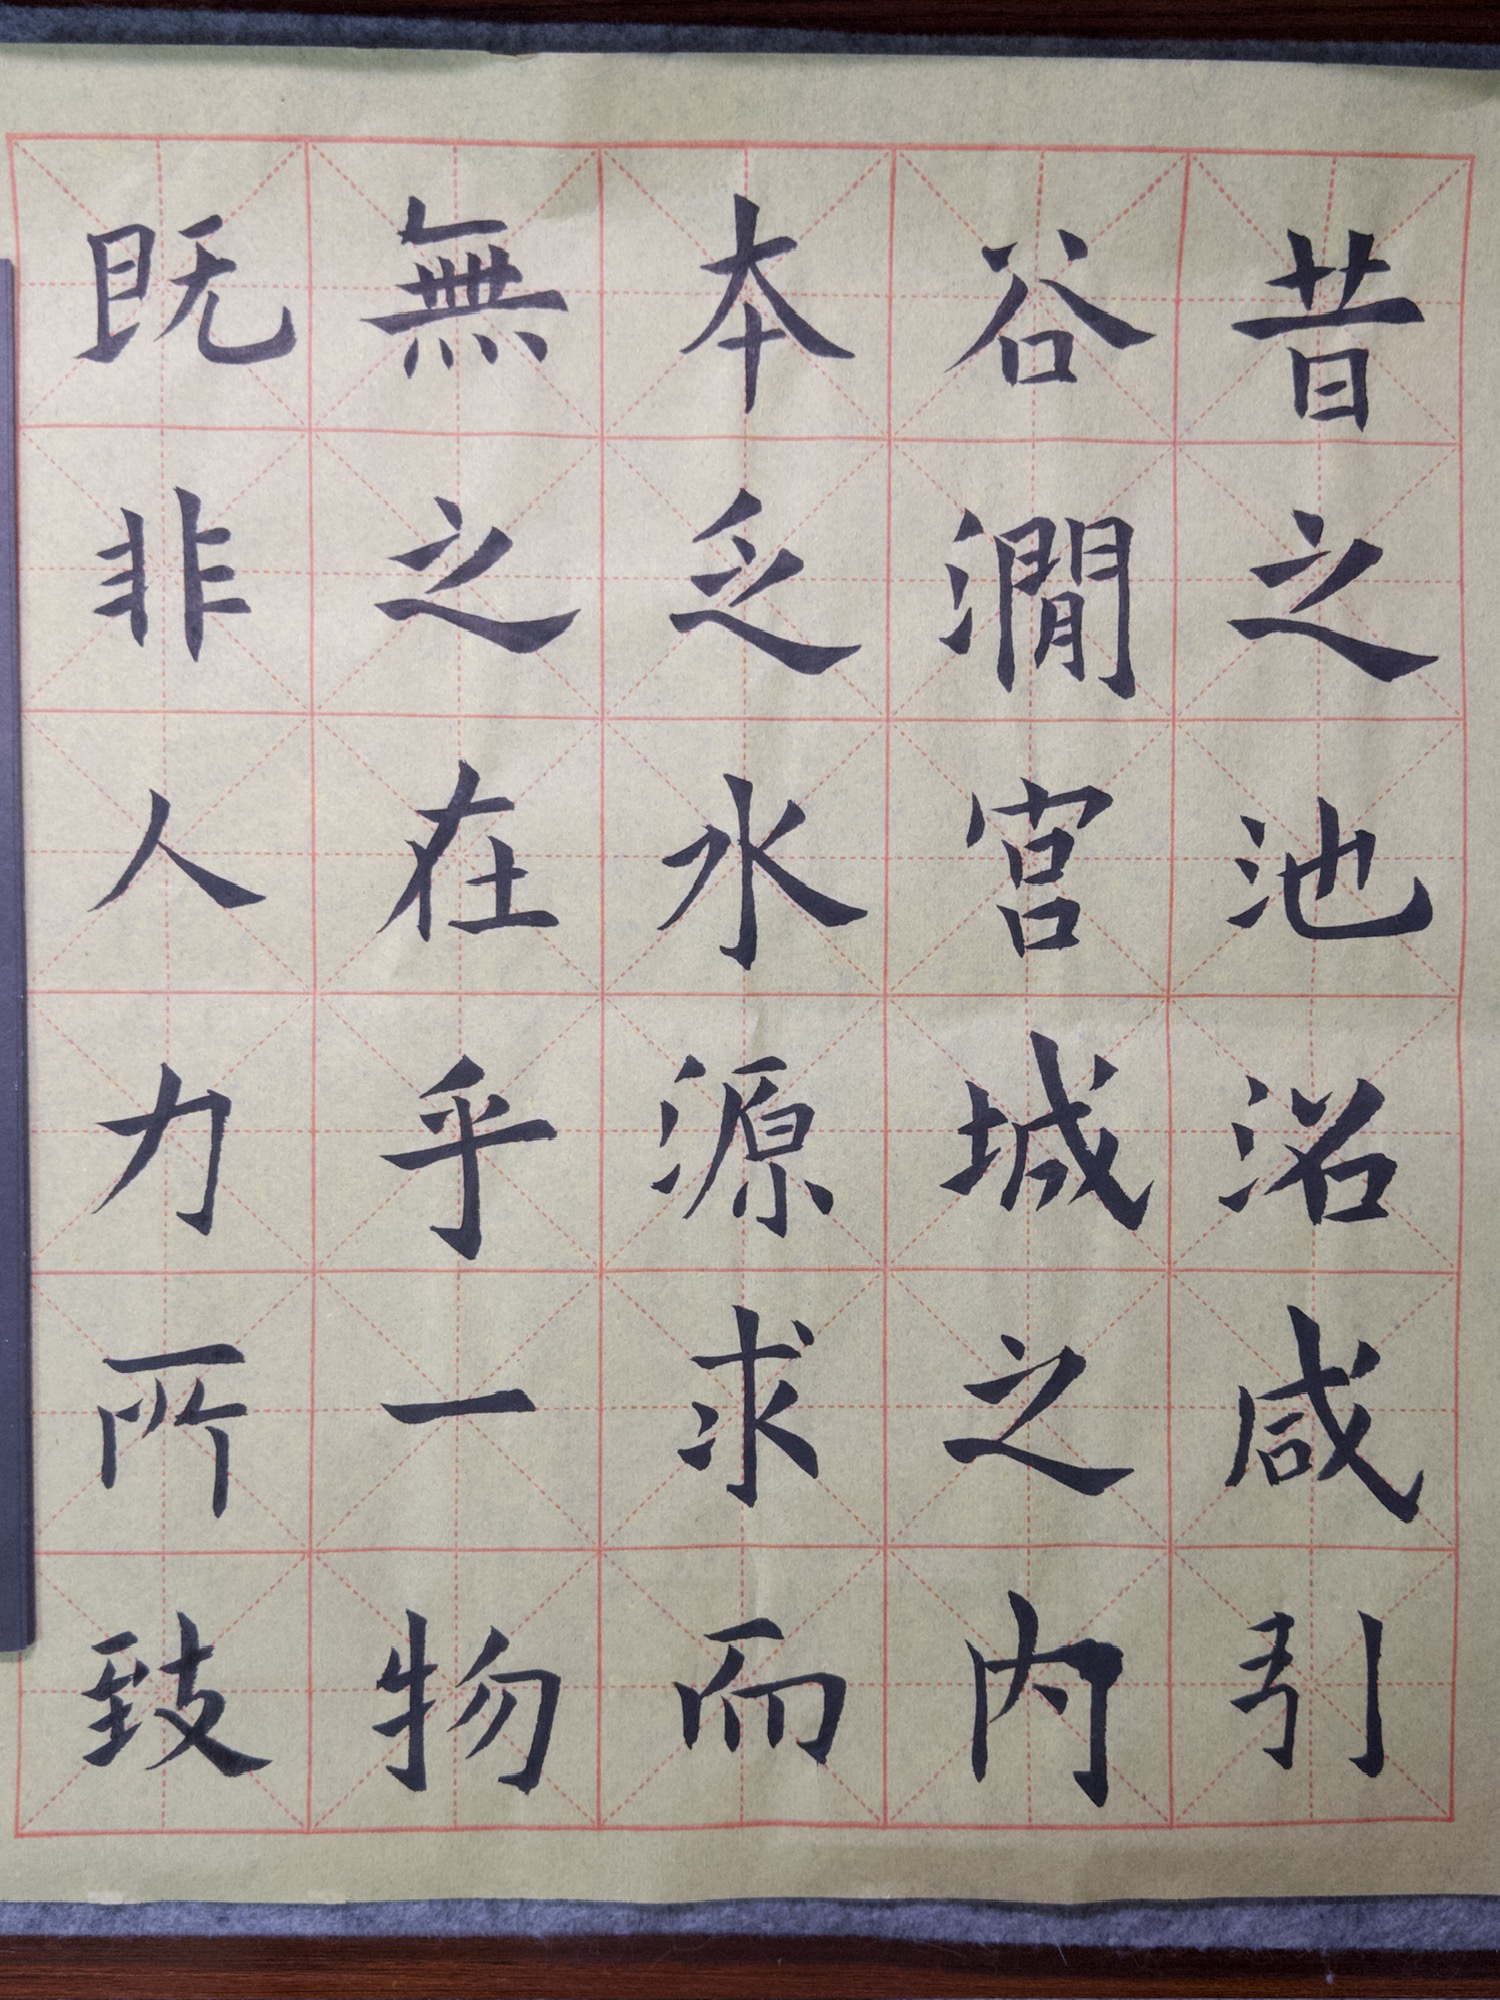 昔之池沼咸引
谷澗宮城之内
本乏水源求而
無之在乎一物
既非人力所致